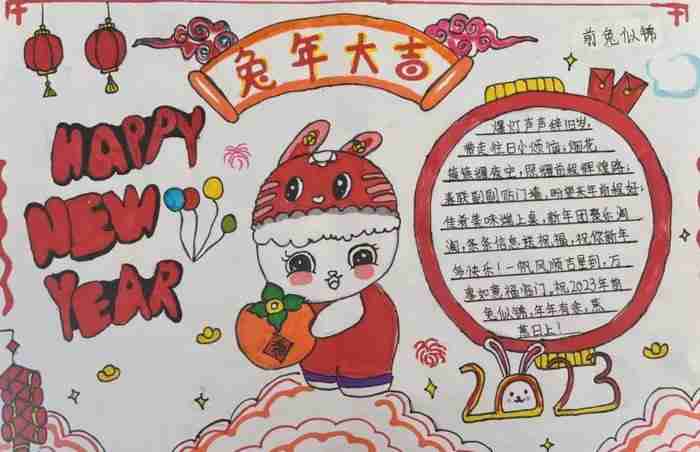 兔年大吉
前兔似锦
HAPPY
NEW
YEAR
爆灯声声辞旧岁,
带走往日小烦恼;烟花
簇簇夜空,照耀前程辉煌路;
春联副副贴门墙,盼望来年般般好;
佳肴美味端上桌,新年团聚乐淘
淘;条条信息接祝福,祝你新年
多快乐!一帆风顺吉星到,万
事如意福临门,祝2023年前
兔似锦,年年有余,蒸
蒸日上!
2023